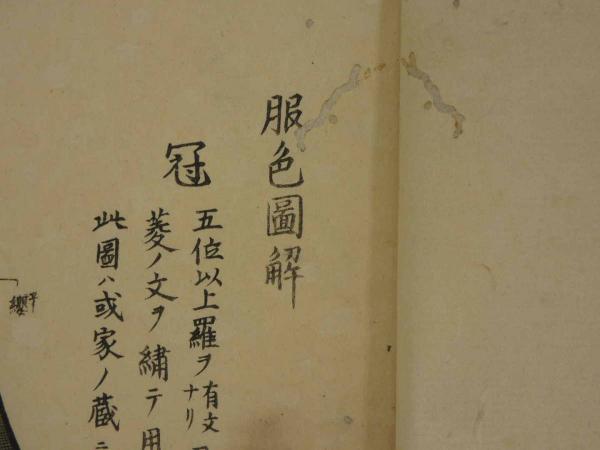 服色圖解
冠
五位以上羅ヲ有文ナリ
菱ノ文ヲ繡テ用
此圖ハ或家ノ蔵ニ
纓